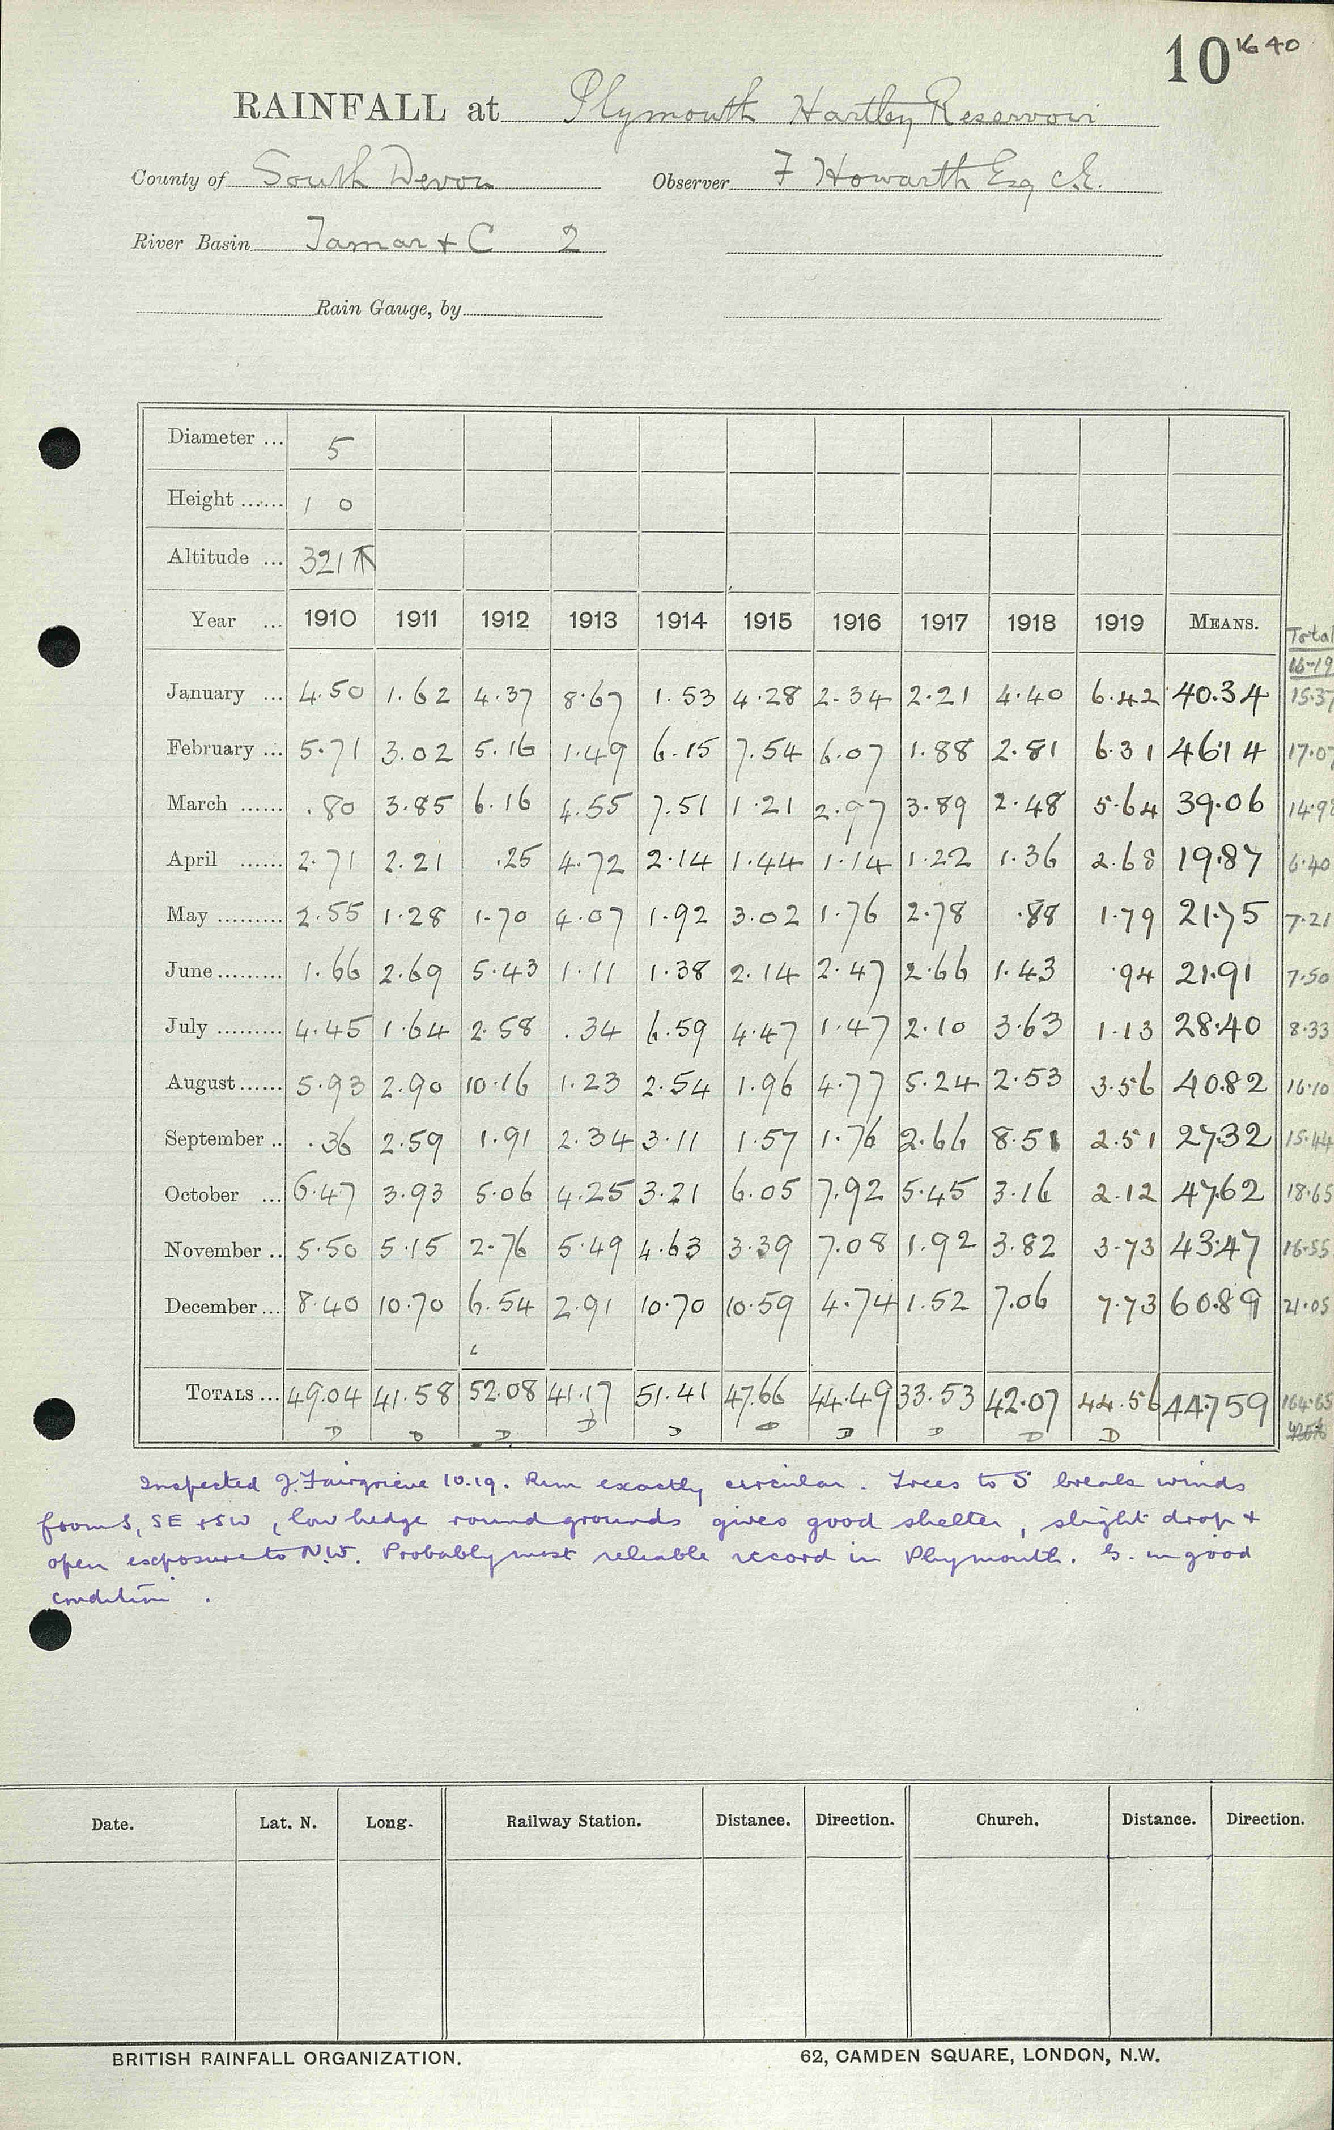 10 16 40
RAINFALL at Plymouth Hartley Reservoir
County of South Devon Observer F Howarth Esq C.E.
River Basin Tamar + C 2
Rain Gauge, by
Diameter ... 5
Height ...... 1 0
Altitude ... 321
Year ... 1910 1911 1912 1913 1914 1915 1916 1917 1918 1919 MEANS. Total 16-19
January ... 4.50 1.62 4.37 8.67 1.53 4.28 2.34 2.21 4.40 6.42 40.34 15.37
February ... 5.71 3.02 5.16 1.49 6.15 7.54 6.07 1.88 2.81 6.31 46.14 17.07
March ...... .80 3.85 6.16 4.55 7.51 1.21 2.97 3.89 2.48 5.64 39.06 14.98
April ...... 2.71 2.21 .25 4.72 2.14 1.44 1.14 1.22 1.36 2.68 19.87 6.40
May ......... 2.55 1.28 1.70 4.07 1.92 3.02 1.76 2.78 .88 1.79 21.75 7.21
June ......... 1.66 2.69 5.43 1.11 1.38 2.14 2.47 2.66 1.43 .94 21.91 7.50
July ......... 4.45 1.64 2.58 .34 6.59 4.47 1.47 2.10 3.63 1.13 28.40 8.33
August ...... 5.93 2.90 10.16 1.23 2.54 1.96 4.77 5.24 2.53 3.56 40.82 16.10
September .. .36 2.59 1.91 2.34 3.11 1.57 1.76 2.66 8.51 2.51 27.32 15.44
October ... 6.47 3.93 5.06 4.25 3.21 6.05 7.92 5.45 3.16 2.12 47.62 18.65
November .. 5.50 5.15 2.76 5.49 4.63 3.39 7.08 1.92 3.82 3.73 43.47 16.55
December ... 8.40 10.70 6.54 2.91 10.70 10.59 4.74 1.52 7.06 7.73 60.89 21.05
TOTALS ... 49.04 41.58 52.08 41.17 51.41 47.66 44.49 33.53 42.07 44.56 447.59 164.65
D D D D D D D D D D
Inspected J. Fairgrieve 10.19. Rim exactly circular. Trees to S break winds
from S, SE + SW, low hedge round grounds gives good shelter, slight drop +
open exposure to N.W. Probably most reliable record in Plymouth. G. in good
condition.
Date. Lat. N. Long. Railway Station. Distance. Direction. Church. Distance. Direction.
BRITISH RAINFALL ORGANIZATION. 62, CAMDEN SQUARE, LONDON, N.W.